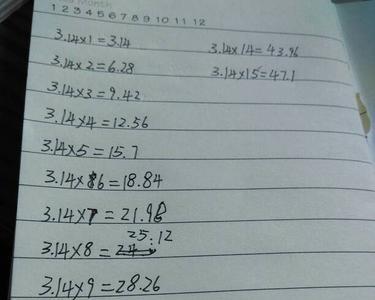 Month
1 2 3 4 5 6 7 8 9 10 11 12
3.14×1=3.14
3.14×2=6.28
3.14×3=9.42
3.14×4=12.56
3.14×5=15.7
3.14×6=18.84
3.14×7=21.98
25.12
3.14×8=
3.14×9=28.26
3.14×14=43.96
3.14×15=47.1